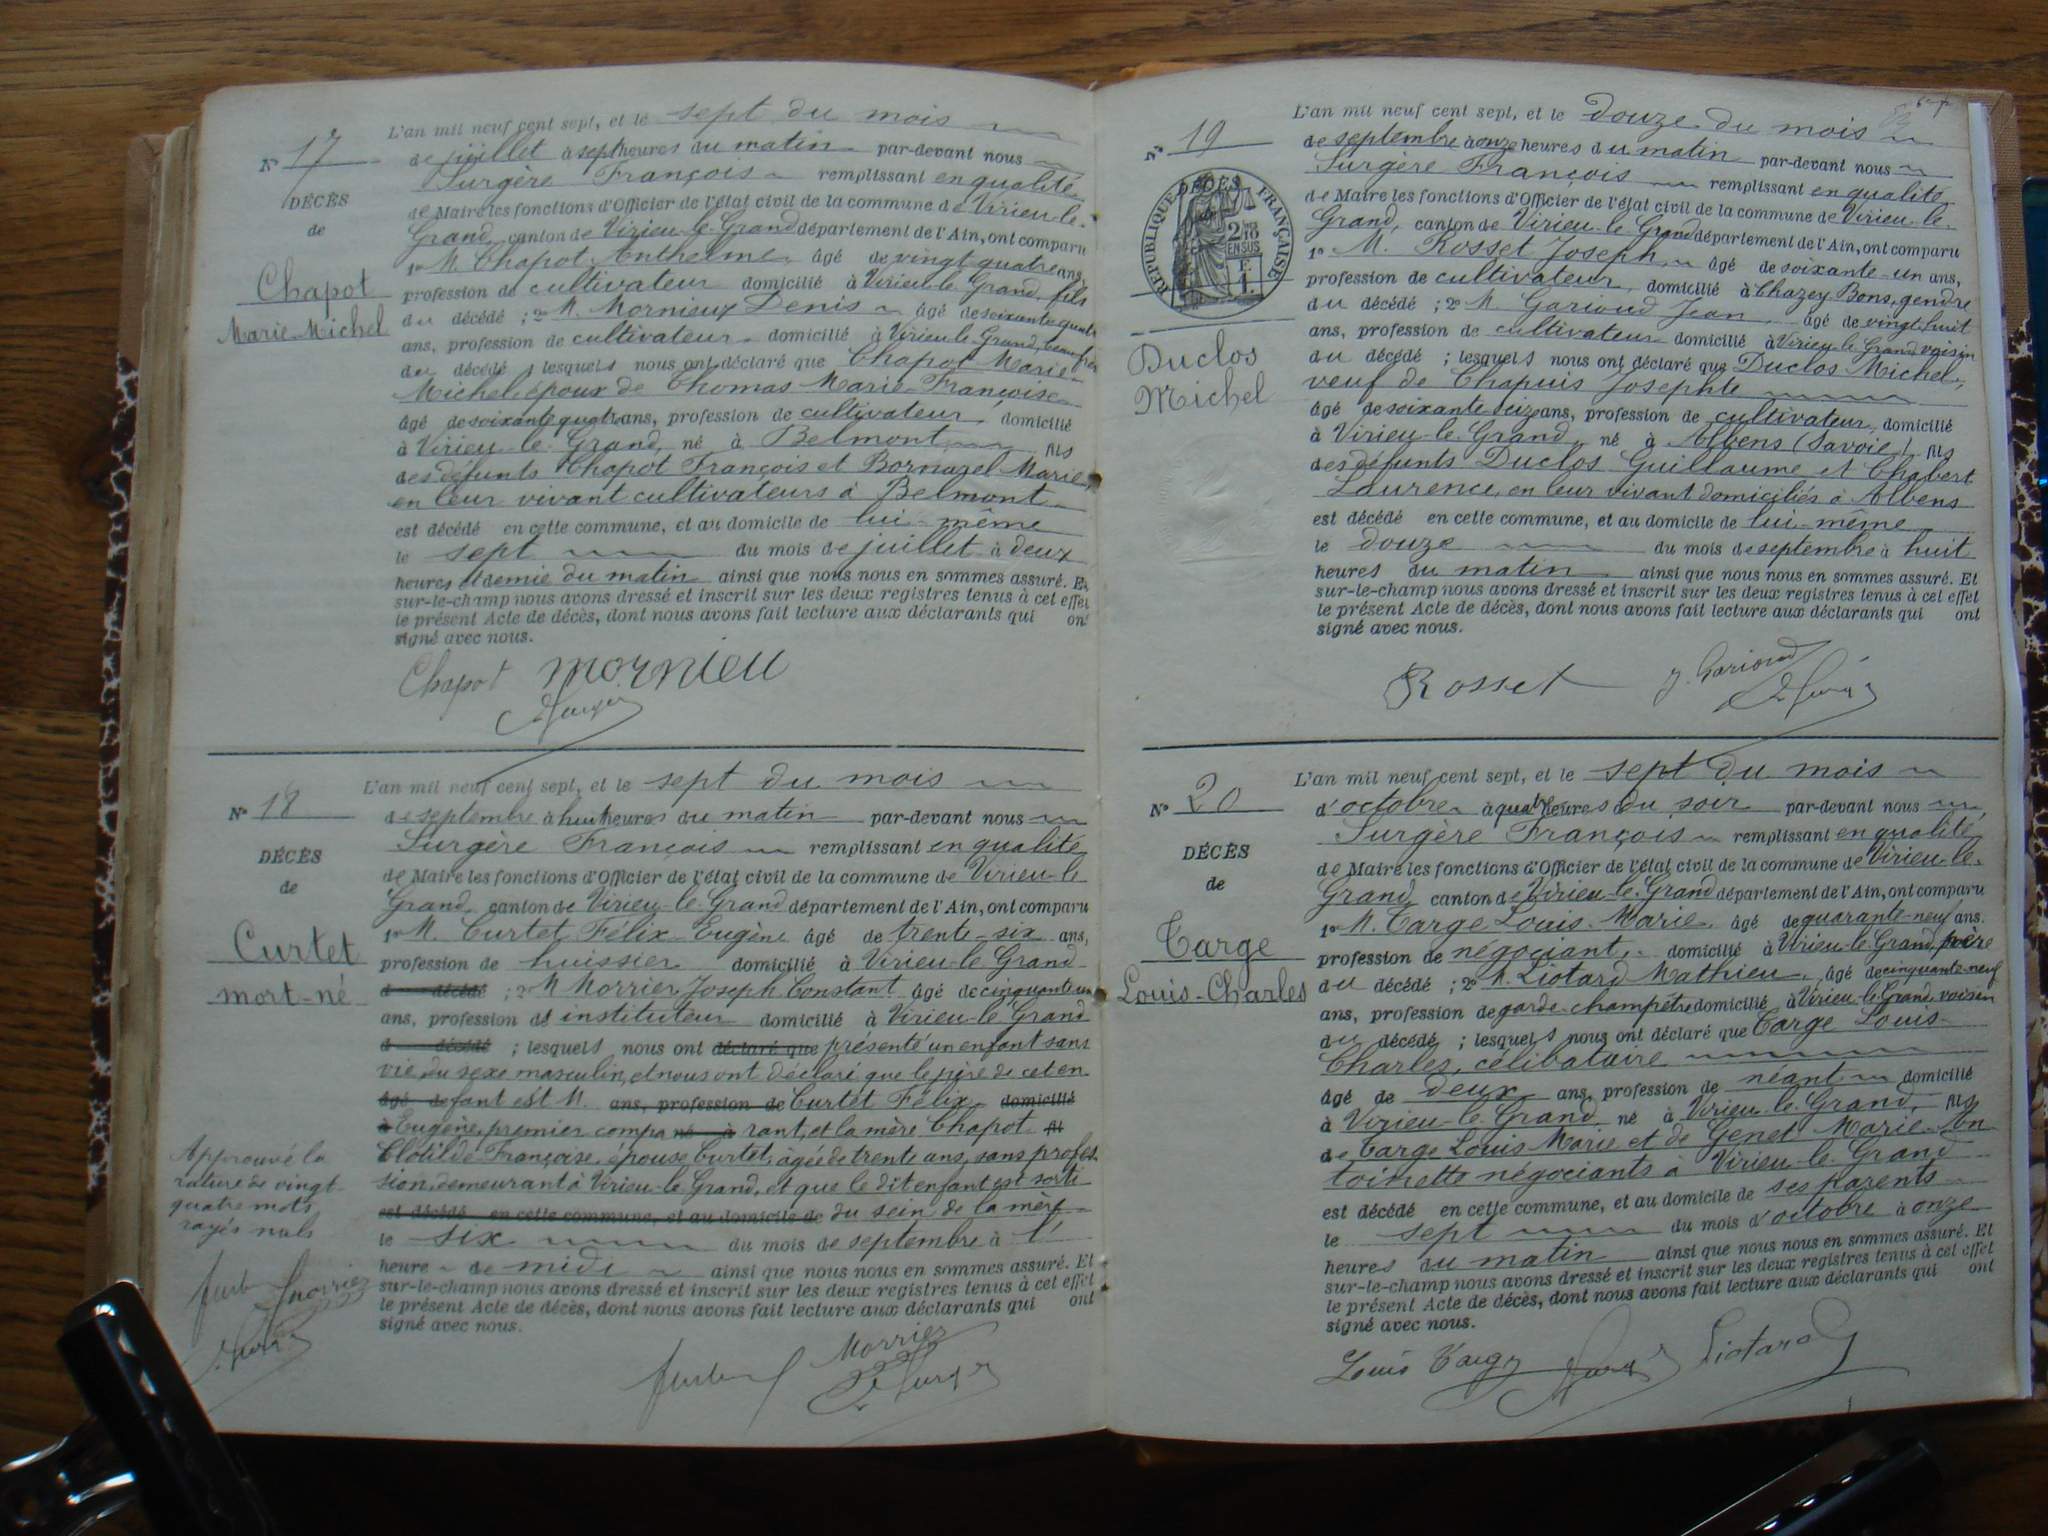 N° 17
DÉCÈS
de
Chapot
Marie-Michel
L'an mil neuf cent sept, et le sept du mois
de juillet à sept heures du matin par-devant nous
Surgère François remplissant en qualité
de Maire les fonctions d'Officier de l'état civil de la commune de Virieu-le-
Grand, canton de Virieu-le-Grand département de l'Ain, ont comparu
1° M. Chapot Anthelme, âgé de vingt quatre ans,
profession de cultivateur domicilié à Virieu-le-Grand, fils
du décédé ; 2° M. Mornieux Denis âgé de soixante quatre
ans, profession de cultivateur domicilié à Virieu-le-Grand, beau-frère
du décédé ; lesquels nous ont déclaré que Chapot Marie-
Michel, époux de Thomas Marie Françoise
âgé de soixante quatre ans, profession de cultivateur, domicilié
à Virieu-le-Grand, né à Belmont fils
des défunts Chapot François et Bornazel Marie,
en leur vivant cultivateurs à Belmont
est décédé en cette commune, et au domicile de lui-même
le sept du mois de juillet à deux
heures et demie du matin ainsi que nous nous en sommes assuré. Et
sur-le-champ nous avons dressé et inscrit sur les deux registres tenus à cet effet
le présent Acte de décès, dont nous avons fait lecture aux déclarants qui ont
signé avec nous.
Chapot mornieu
N° 18
DÉCÈS
de
Curtet
mort-né
L'an mil neuf cent sept, et le sept du mois
de septembre à huit heures du matin par-devant nous
Surgère François remplissant en qualité
de Maire les fonctions d'Officier de l'état civil de la commune de Virieu-le
Grand, canton de Virieu-le-Grand département de l'Ain, ont comparu
1° M. Curtet Félix-Eugène âgé de trente-six ans,
profession de huissier domicilié à Virieu-le-Grand
d décédé ; 2° M Morrier Joseph Constant âgé de cinquante un
ans, profession de instituteur domicilié à Virieu-le-Grand
d décédé ; lesquels nous ont déclaré que présenté un enfant sans
vie, du sexe masculin, et nous ont déclaré que le père de cet en
âgé de fant est M. ans, profession de Curtet Félix domicilié
à Eugène, premier compa né à rant, et la mère Chapot fil
Clotilde Françoise, épouse Curtet, âgée de trente ans, sans profes
sion, demeurant à Virieu-le-Grand, et que le dit enfant est sorti
est décédé en cette commune, et au domicile de du sein de la mère
le six du mois de septembre à l'
heure de midi ainsi que nous nous en sommes assuré. Et
sur-le-champ nous avons dressé et inscrit sur les deux registres tenus à cet effet
le présent Acte de décès, dont nous avons fait lecture aux déclarants qui ont
signé avec nous.
Approuvé la
rature de vingt
quatre mots
rayés nuls
Morrier
N° 19
DÉCÈS
de
RÉPUBLIQUE FRANÇAISE
2/10
EN SUS
Duclos
Michel
L'an mil neuf cent sept, et le douze du mois
de septembre à onze heures du matin par-devant nous
Surgère François remplissant en qualité
de Maire les fonctions d'Officier de l'état civil de la commune de Virieu-le-
Grand, canton de Virieu-le-Grand département de l'Ain, ont comparu
1° M. Rosset Joseph âgé de soixante-un ans,
profession de cultivateur, domicilié à Chazey Bons, gendre
du décédé ; 2° M. Garioud Jean, âgé de vingt huit
ans, profession de cultivateur domicilié à Virieu-le-Grand voisin
du décédé ; lesquels nous ont déclaré que Duclos Michel,
veuf de Chapuis Josephte
âgé de soixante seize ans, profession de cultivateur, domicilié
à Virieu-le-Grand, né à Albens (Savoie), fils
des défunts Duclos Guillaume et Chabert
Laurence, en leur vivant domiciliés à Albens
est décédé en cette commune, et au domicile de lui-même
le douze du mois de septembre à huit
heures du matin ainsi que nous nous en sommes assuré. Et
sur-le-champ nous avons dressé et inscrit sur les deux registres tenus à cet effet
le présent Acte de décès, dont nous avons fait lecture aux déclarants qui ont
signé avec nous.
Rosset J. Garioud
N° 20
DÉCÈS
de
Targe
Louis-Charles
L'an mil neuf cent sept, et le sept du mois
d'octobre à quatre heures du soir par-devant nous
Surgère François remplissant en qualité
de Maire les fonctions d'Officier de l'état civil de la commune de Virieu-le-
Grand, canton de Virieu-le-Grand département de l'Ain, ont comparu
1° M. Targe Louis-Marie, âgé de quarante-neuf ans.
profession de négociant, domicilié à Virieu-le-Grand, père
du décédé ; 2° M. Liotard Mathieu, âgé de cinquante-neuf
ans, profession de garde-champêtre domicilié à Virieu-le-Grand, voisin
du décédé ; lesquels nous ont déclaré que Targe Louis-
Charles, célibataire
âgé de deux ans, profession de néant domicilié
à Virieu-le-Grand né à Virieu-le-Grand, fils
de Targe Louis Marie et de Genet Marie-An
toinette négociants à Virieu-le-Grand
est décédé en cette commune, et au domicile de ses parents
le sept du mois d'octobre à onze
heures du matin ainsi que nous nous en sommes assuré. Et
sur-le-champ nous avons dressé et inscrit sur les deux registres tenus à cet effet
le présent Acte de décès, dont nous avons fait lecture aux déclarants qui ont
signé avec nous.
Louis Targe Liotard